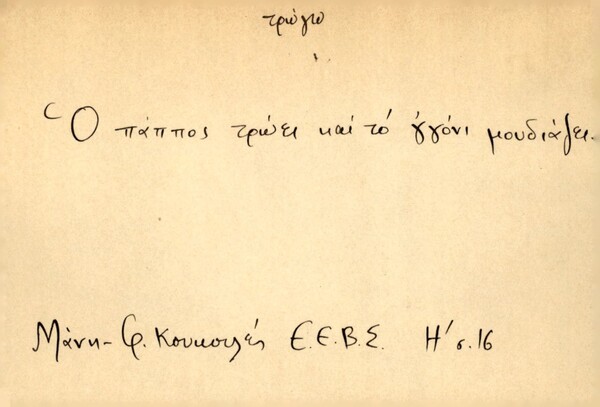 τρώγω
Ὁ πάππος τρώει καί τό ἀγγόνι μουδιάζει.
Μάνη - Φ. Κουκουλές Ε.Ε.Β.Σ. Η' σ. 16